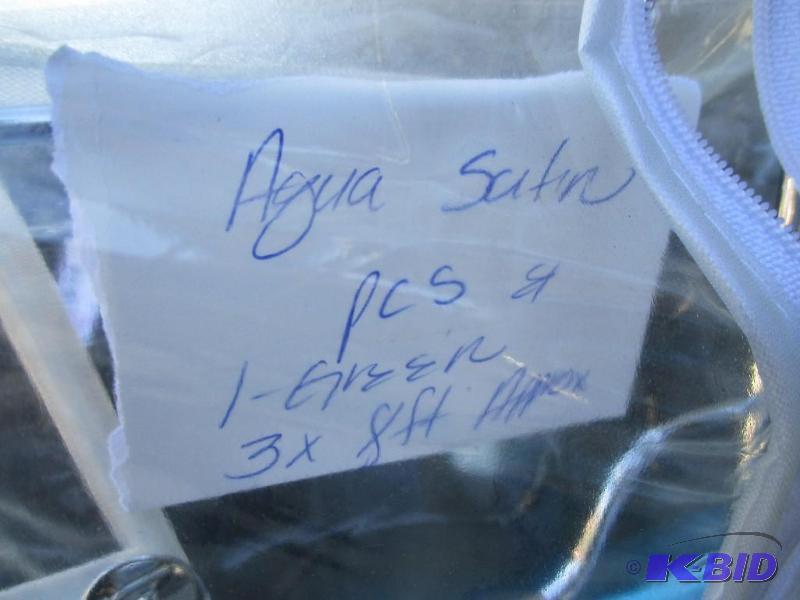 Aqua Satin
pcs &
1-Green
3x 8ft Approx
© K-BID